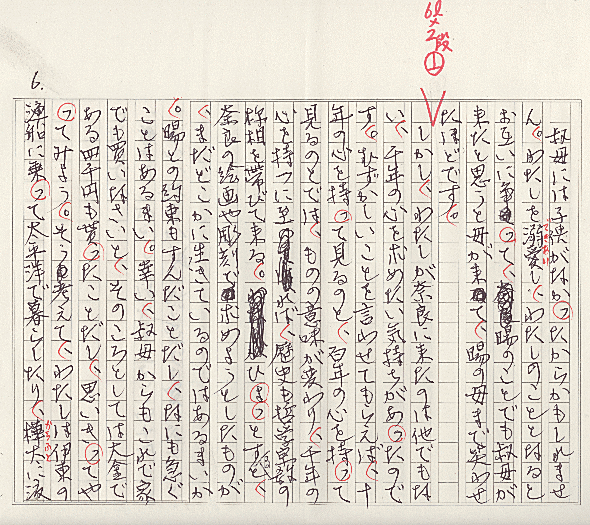 6ℓ×2段①
6.
叔母には子供がなかつたからかもしれませ
ん。わたしを溺愛し、わたしのこととなると
お互いに争つて、賜のことでも叔母が
来たと思うと母が来て、賜の母まで笑わせ
たほどです。
しかし、わたしが奈良に来たのは他でもな
い、千年の心を求めたい気持ちがあつたので
す。むずかしいことを言わせてもらえば、十
年の心を持つて見るのと、百年の心を持つて
見るのとでは、ものの意味が変わり、千年の
心を持つに至れば、歴史も哲学
様相を帯びて来る。ひよつとすると、
奈良の絵画や彫刻で求めようとしたものが
、まだどこかに生きているのではあるまいか
。賜との約束もすんだことだし、なにも急ぐ
ことはあるまい。幸い、叔母からもこれで家
でも買いなさいと、そのころとしては大金で
ある四千円も貰つたことだし、思いきつてや
つてみよう。そう考えて、わたしは伊東の
漁船に乗つて太平洋で暮らしたり、樺太に渡
からふと